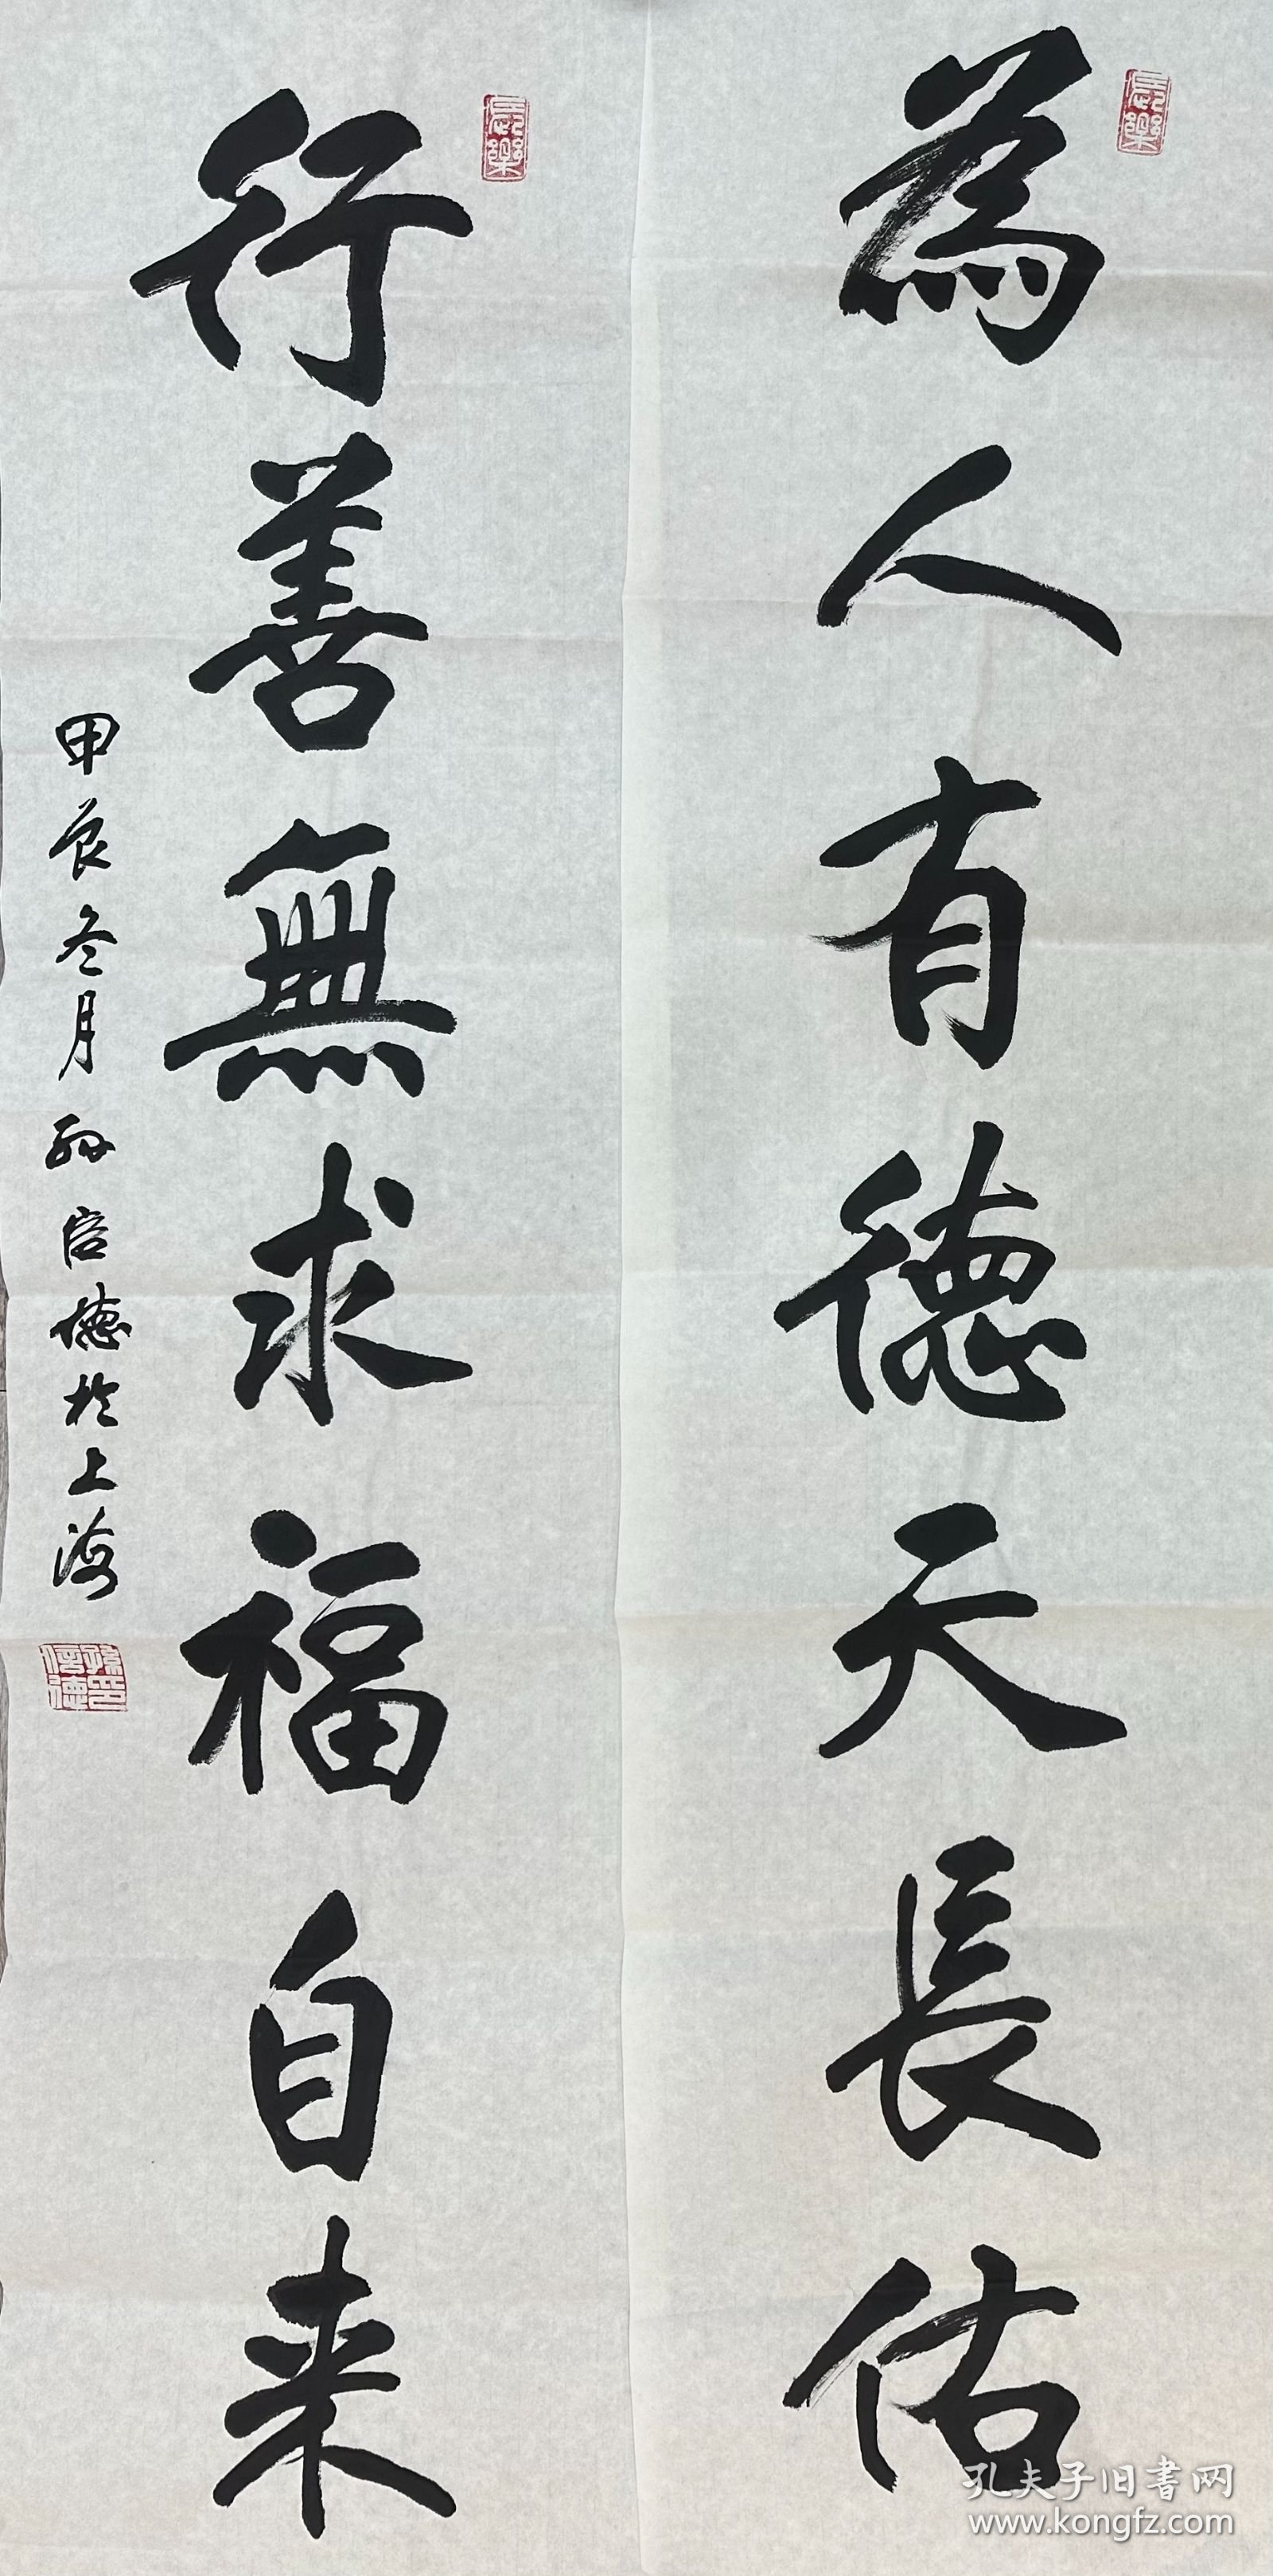 為人有德天長佑
行善無求福自来
甲辰冬月孙信德於上海
孔夫子旧書网
www.kongfz.com